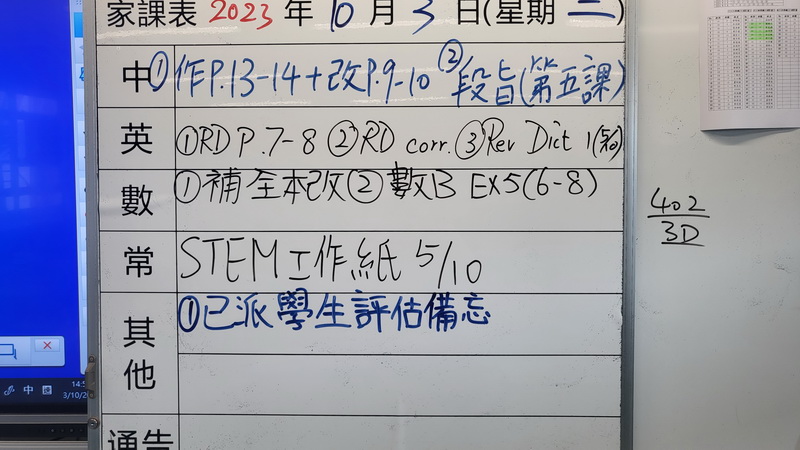 家課表 2023 年 10 月 3 日(星期 二)
中 ①作P.13-14+改P.9-10 ②段旨(第五課)
英 ①RD P.7-8 ②RD corr. ③Rev Dict 1
數 ①補全本改②數B EX5(6-8)
常 STEM工作紙 5/10
其他 ①已派學生評估備忘
通告
402
3D
中
14:5
3/10/20